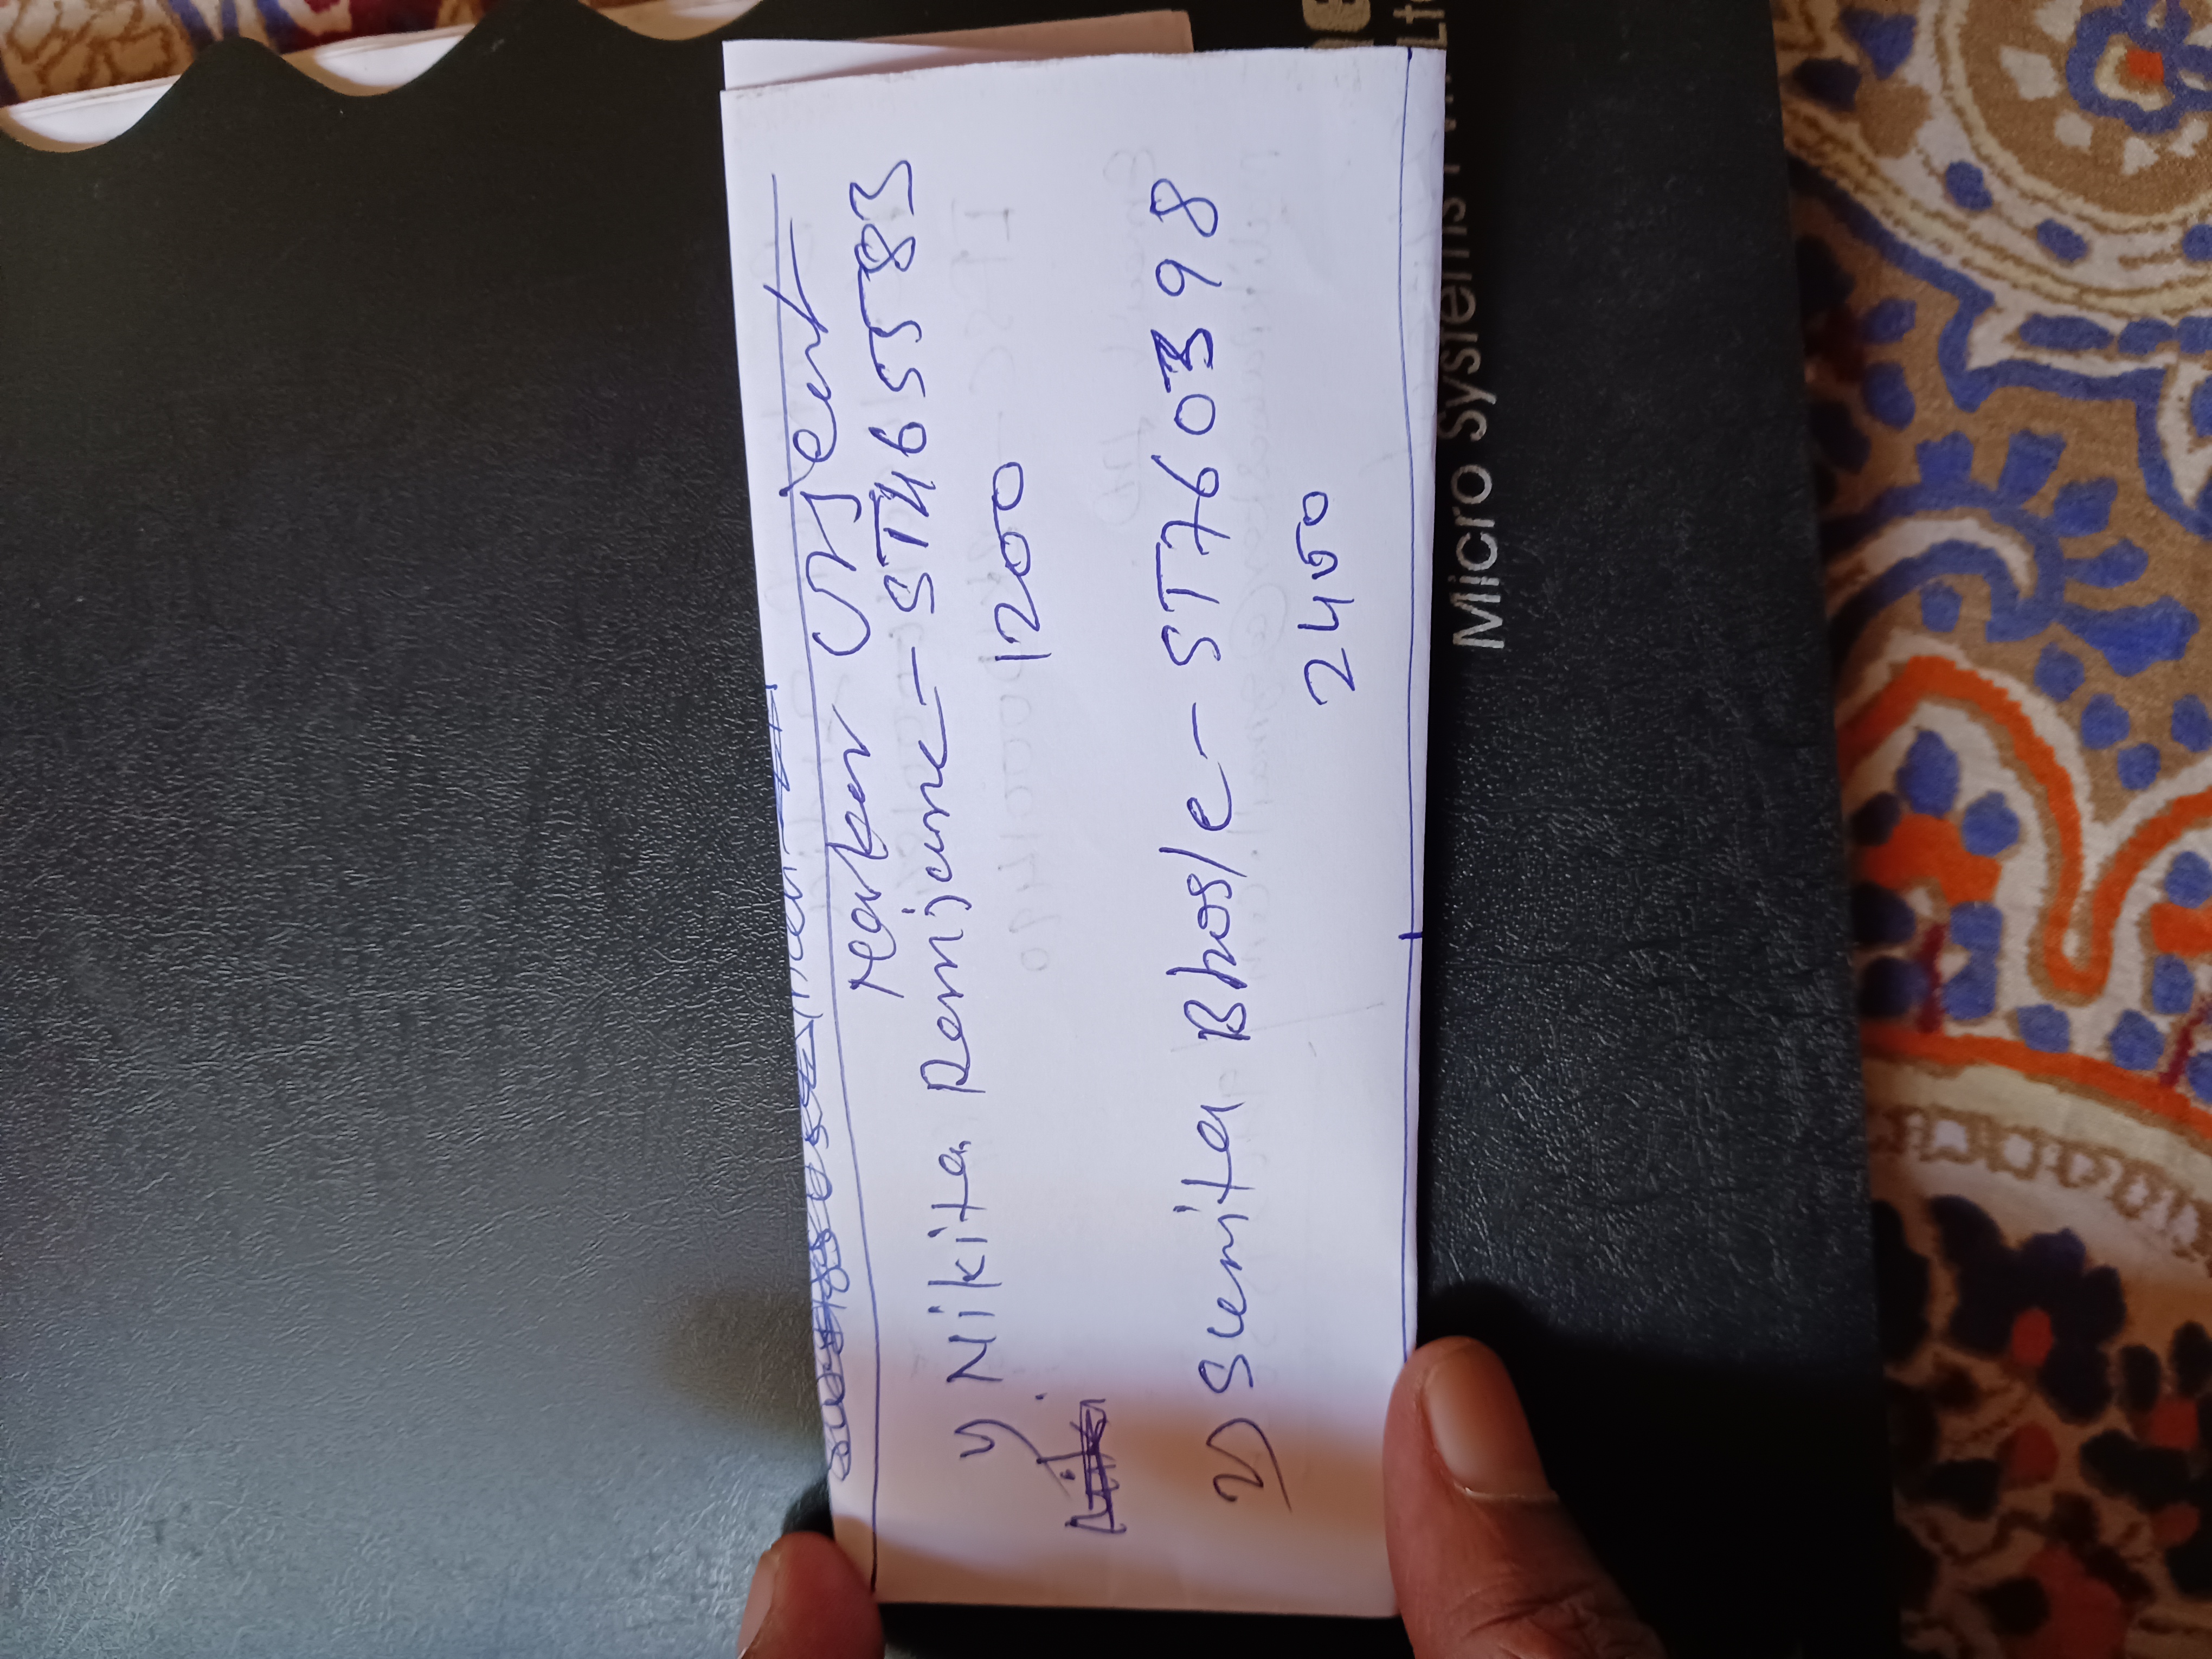 Urjent
1) Nikita Ramjane - ST465583
1200
2) Sunita Bhosle - ST760398
2400
Micro Systems